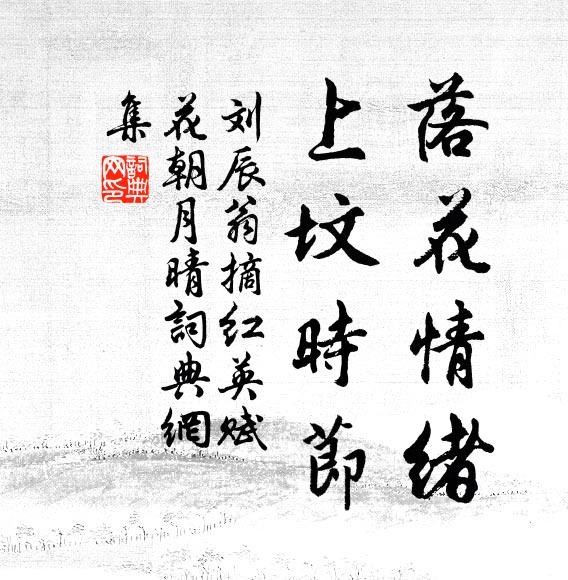 落花情緒
上坟時節
刘辰翁摘红英赋
花朝月晴詞典網
集
詞典
网印